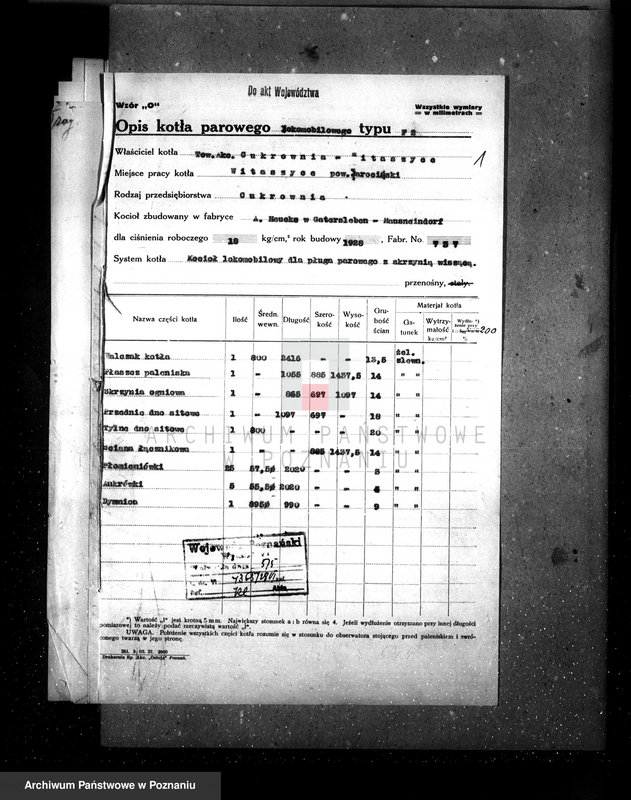 Do akt Województwa
Wzór „C"
Wszystkie wymiary
= w milimetrach =
Opis kotła parowego lokomobilowego typu F 2
1
Właściciel kotła Tow.Akc. Cukrownia - Witaszyce
Miejsce pracy kotła Witaszyce pow. Jarociński
Rodzaj przedsiębiorstwa Cukrownia
Kocioł zbudowany w fabryce A. Heucke w Gatersleben - Hausneindorf
dla ciśnienia roboczego 18 kg/cm,² rok budowy 1928 , Fabr. No. 757
System kotła Kocioł lokomobilowy dla pługa parowego z skrzynią wiszącą.
przenośny, stały.
Nazwa części kotła Ilość Średn. wewn. Długość Szerokość Wysokość Grubość ścian Materjał kotła
Gatunek Wytrzymałość kc/cm² % 200
Walczak kotła 1 800 2416 - - 13,5 żel. zlewn.
Płaszcz paleniska 1 - 1055 885 1437,5 14 " "
Skrzynia ogniowa 1 - 865 697 1097 14 " "
Przednie dno sitowe 1 - 1097 697 - 18 " "
Tylne dno sitowe 1 800 - - - 20 " "
Ściana łącznikowa 885 1437,5 14 " "
Płomieniówki 25 57,5Ø 2020 - - 3 " "
Ankrówki 5 55,5Ø 2020 - - " "
Dymnica 1 895Ø 990 - - 9 " "
Wojew Poznański
*) Wartość „l" jest krotną 5 mm. Największy stosunek a : b równa się 4. Jeżeli wydłużenie otrzymano przy innej długości
pomiarowej to należy podać rzeczywistą wartość „l".
UWAGA. Położenie wszystkich części kotła rozumie się w stosunku do obserwatora stojącego przed paleniskiem i zwróconego twarzą w jego stronę.
Drukarnia Sp. Akc. „Ostoja" Poznań.
ARCHIWUM PAŃSTWOWE
W POZNANIU
Archiwum Państwowe w Poznaniu